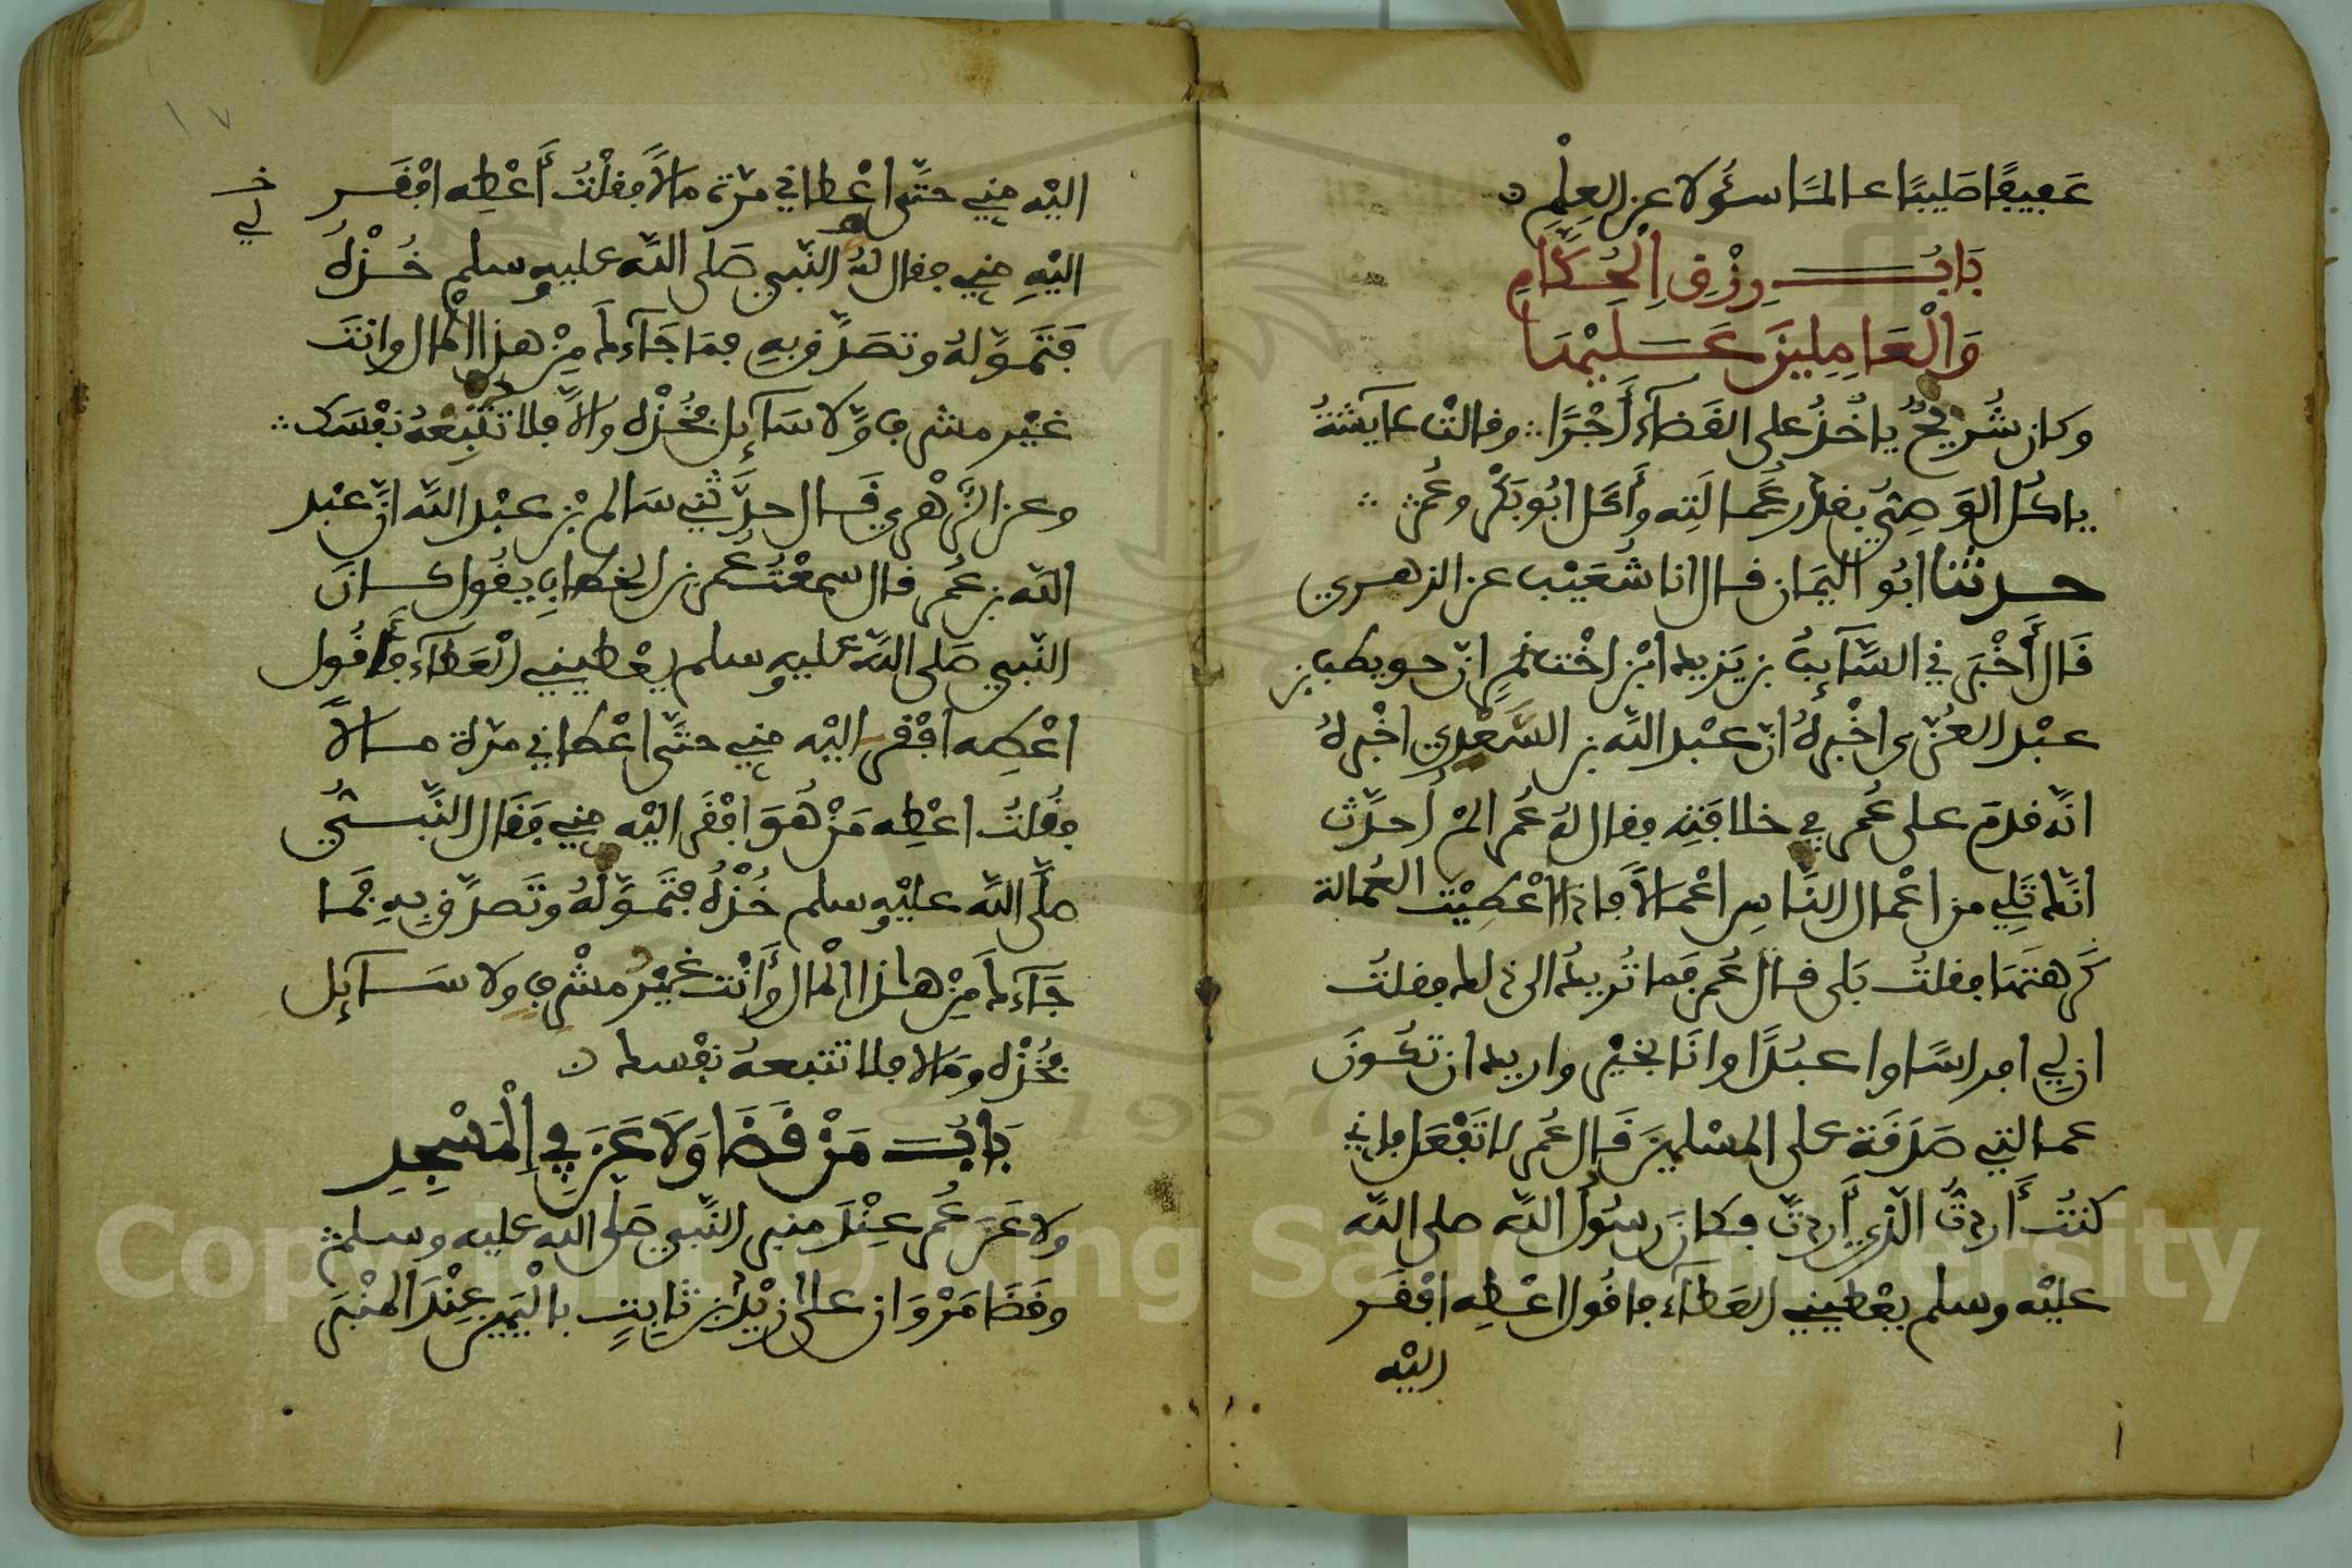 عَفِيفًا صَلِيبًا عالمًا سئولا عن العِلْمِ ن
بَابُ رِزْقِ الْحُكَّامِ
وَالْعَامِلِينَ عَلَيْهَا
وكان شُرَيْحٌ ياخُذُ على القَضَآءِ أَجْرًا ؞ وقالتْ عآيشةُ
ياكُلُ الوَصِيُّ بقدْر عُمَالَتِه وأَكَلَ ابُو بَكْرٍ وعُمَرُ ؞
حدثنا ابُو اليَمَان قال انا شُعَيْب عن الزهري
قَال أَخْبَرَني السَّآيِبُ بن يَزيد ابْنُ اخْت نَمِرٍ انّ حويطب بن
عبْد العُزّى اخْبرهُ انّ عبْد اللّه بن السَّعْدِي اخْبرهُ
انّه قدمَ على عُمر في خلافتِه فقال لهُ عُمر الَمْ أُحدَّث
انّك تَلِي من اعْمال النّاسِ اعْمالاً فاذا اعْطِيْت العُمالة
كَرِهتَهَا فقلتُ بَلى قال عُمر فما تُريدُ الى ذلك فقلتُ
ان لِي افراسًا واعبُدًا وانَا بخيْرٍ واريد ان تكُونَ
عمالتي صَدَقَة على المسْلمِينَ قَال عُمر لا تَفْعَل فاني
كنتُ أَردتُ الّذي أَردتَّ فكانَ رسُولُ اللّه صلى اللّه
عليْه وسلم يعْطِيني العَطآءَ فاقُول اعْطِه افْقَر
اليْه
١٧
اليْه مِنِّي حتّى اعْطاني مرّة مالاً فقلْتُ أَعْطِه افْقَر
خـ
لي
اليْهِ مِنِّي فقال لهُ النّبي صَلى اللّه عليه وسلم خُذْهُ
فَتَمَوَّلهُ وتصَدَّق بهِ فمَا جَآءَكَ مِنْ هذا الْمال وانْتَ
غيْر مشرفٍ وَّلا سَآئِل فَخُذْه والاَّ فلا تتْبِعْهُ نفْسَك ؞
وعن الزُّهْري قَال حدَّثني سَالم بْن عبْد اللّه انّ عبْد
اللّه بن عُمَر قال سمعْتُ عُمر بن الخطابِ يقُول كانَ
النّبي صَلى اللّه عليه وسلم يعْطِيني العَطآءَ فأَقُول
اعْطِه افْقر اليْه مِنِّي حتّى اعْطاني مرّة مالاً
فقُلتُ اعْطِه مَنْ هُوَ افْقَر اليْه مِنِّي فَقَال النَّبيُّ
صلَّى اللّه عليْه وسلم خُذْهُ فتَمَوَّلْهُ وتَصدَّق بهِ فمَا
جَآءَكَ مِنْ هاذا الْمال وأَنْت غَيْرُ مشْرِفٍ ولا سَآئِل
فخُذْه ومَالا فلا تتبعهُ نفْسك ن
بَابُ مَنْ قَضَا وَلَاعَنَ فِي الْمَسْجِدِ
ولاعَنَ عُمر عِنْدَ منبر النَّبي صَلى الله عليه وسلم ؞
وقَضَا مَرْوَان على زيْد بن ثَابِتٍ بالْيَمِين عِنْدَ المنْبَر